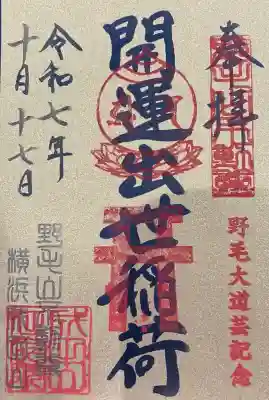 奉拝
野毛大道芸記念
開運出世稲荷
令和七年
十月十七日
横浜成田山
野毛山不動尊